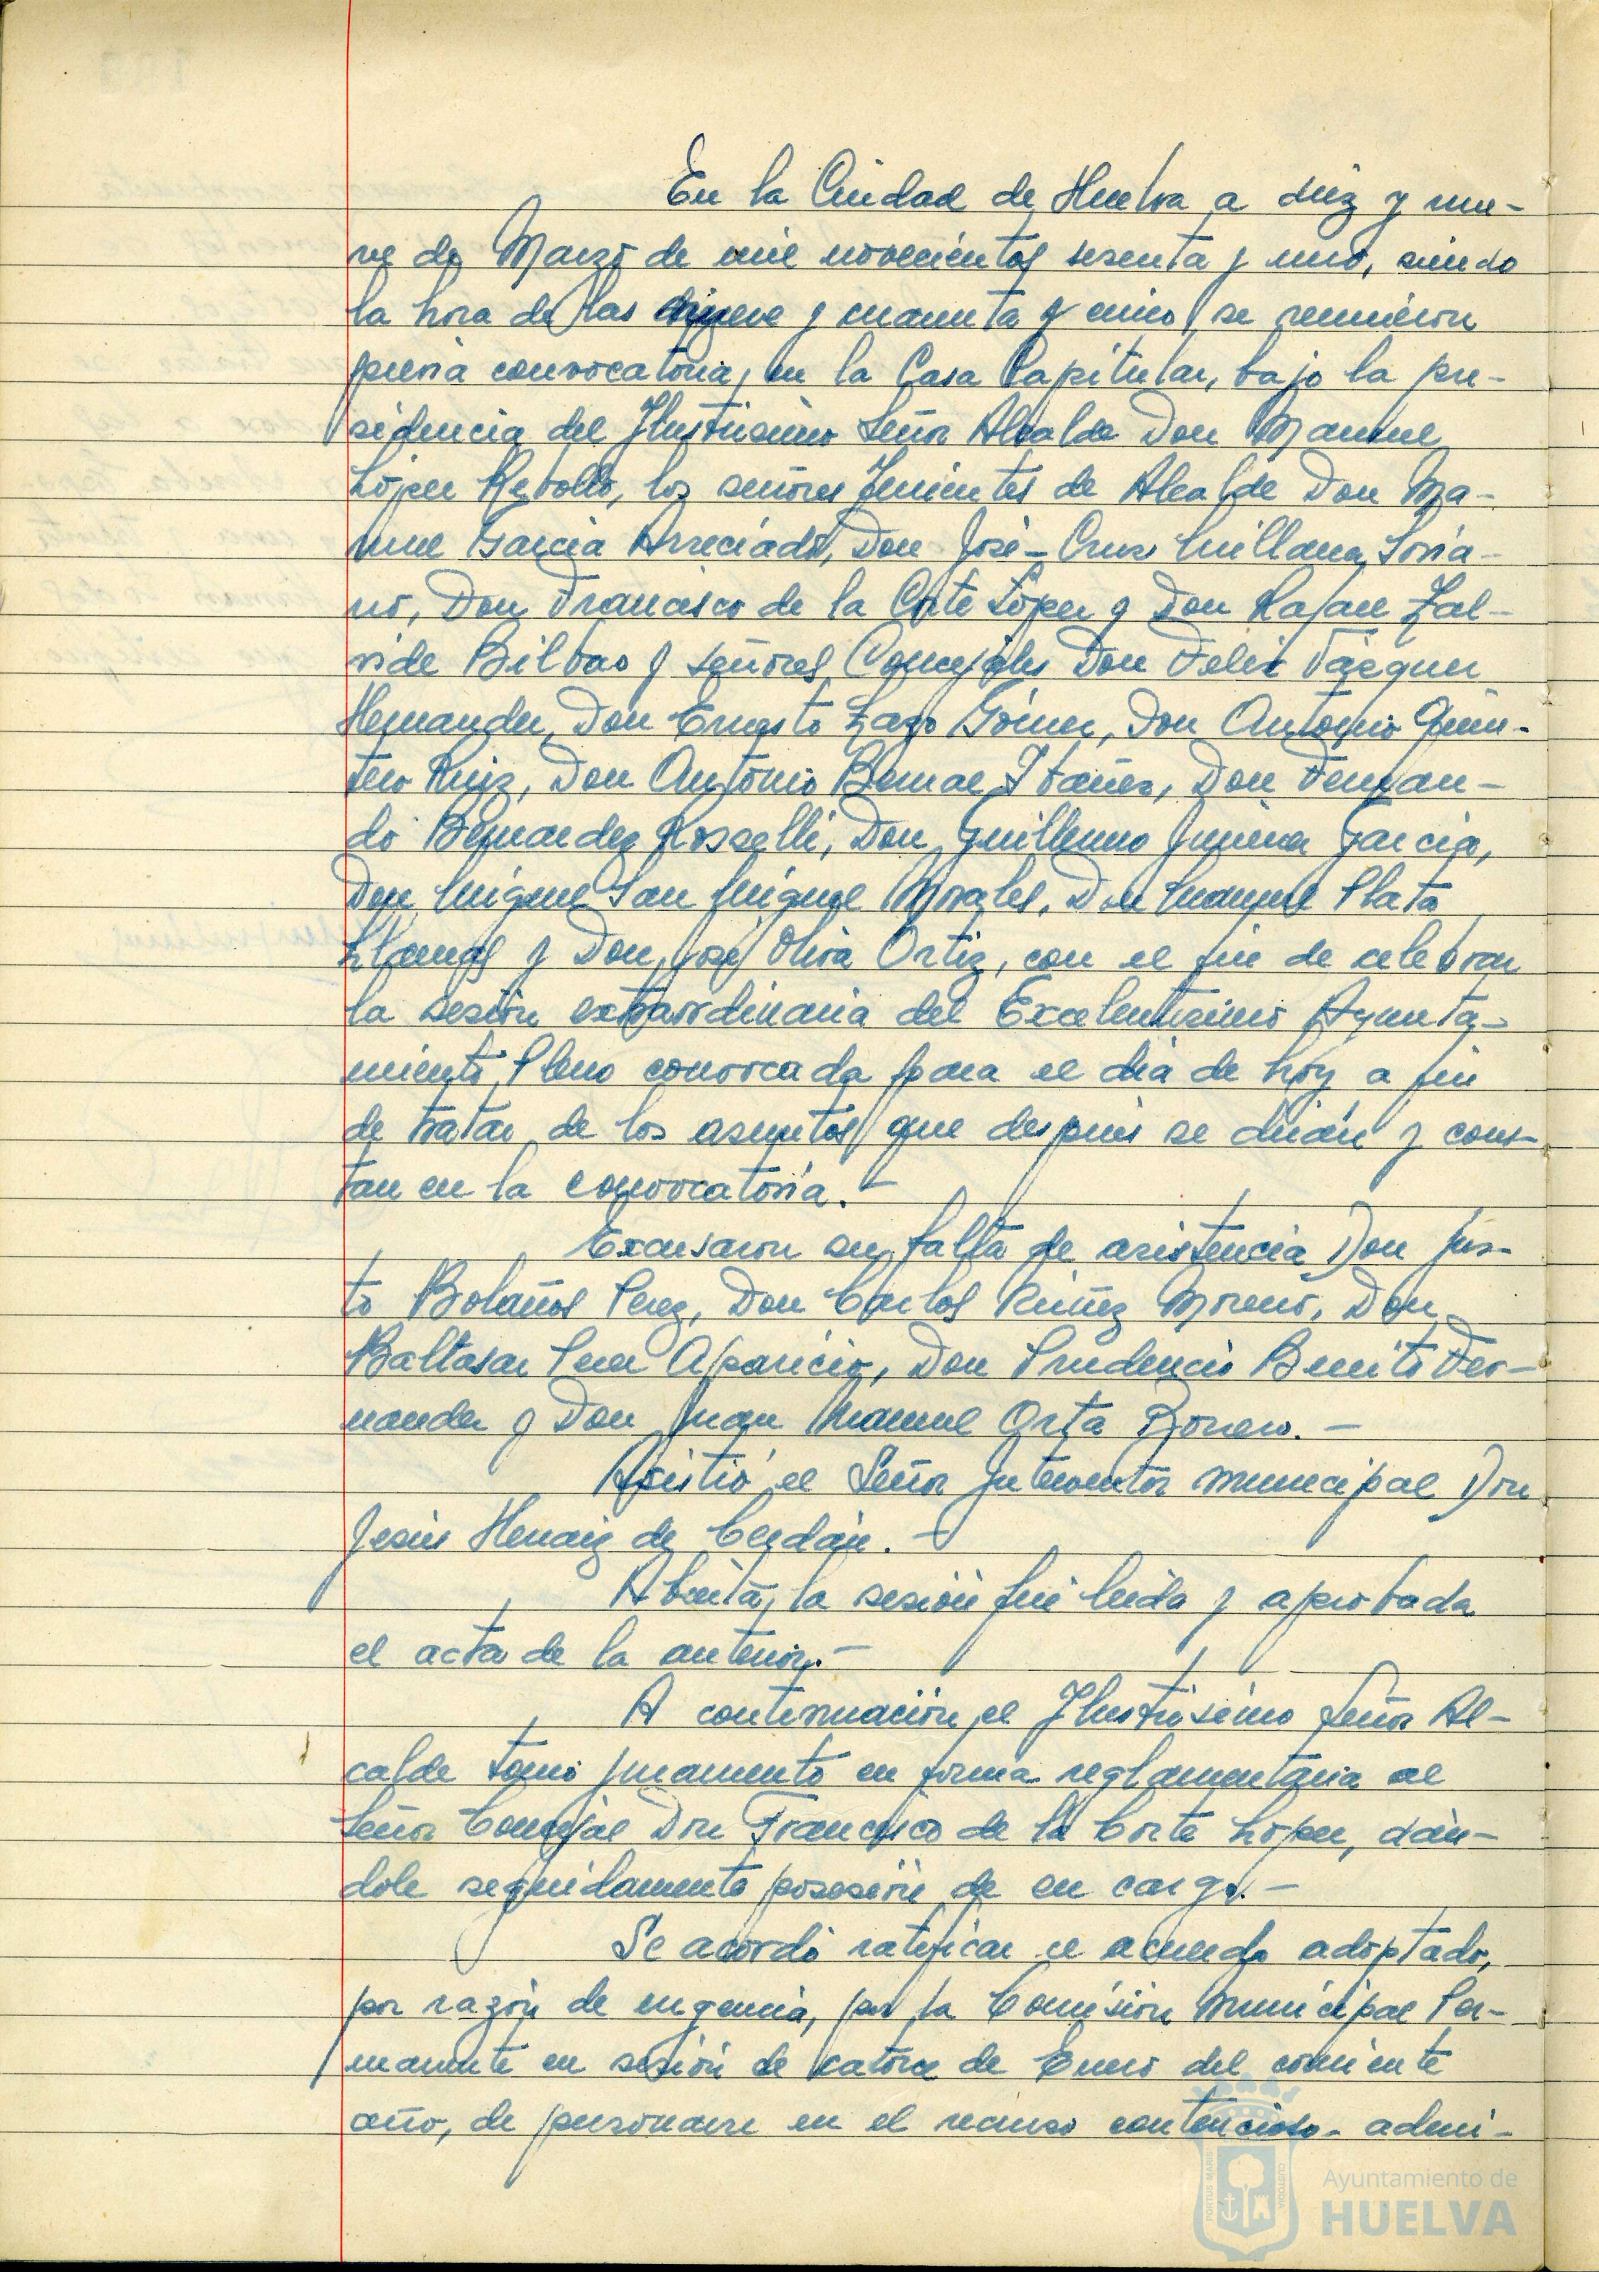 En la Ciudad de Huelva a diez y nue-
ve de Marzo de mil novecientos sesenta y uno, siendo
la hora de las y cuarenta y cinco, se reunieron
previa convocatoria, en la Casa Capitular, bajo la pre-
sidencia del Ilustrisimo Señor Alcalde Don Manuel
López Rebollo, los señores Tenientes de Alcalde Don Ma-
nuel Garcia Arreciado, Don José-Cruz Millana Soria-
no, Don Francisco de la Corte López y Don Rafael Zal-
vide Bilbao y señores Concejales Don Felix Vázquez
Hernandez, Don Ernesto Lazo Gómez, Don Antonio Quin-
tero Ruiz, Don Antonio Bernal Ibañez, Don Fernan-
do Bernardez Rosselli, Don Guillermo Jiménez Garcia,
Don Miguel San Miguel Morales, Don Manuel Plata
Llamas y Don José Oliva Ortiz, con el fin de celebrar
la sesión extraordinaria del Excelentisimo Ayunta-
miento Pleno convocada para el dia de hoy a fin
de tratar de los asuntos que después se dirán y cons-
tan en la convocatoria.-
Excusaron su falta de asistencia Don Jus-
to Bolaños Perez, Don Carlos Núñez Moreno, Don
Baltasar Aparicio, Don Prudencio Benito Fer-
nandez y Don Juan Manuel Orta Romero.-
Asistió el Señor Interventor municipal Don
Jesús Hernaiz de Cerdán.-
Abierta, la sesión fué leida y aprobada
el acta de la anterior.-
A continuación, el Ilustrisimo Señor Al-
calde tomó juramento en forma reglamentaria al
Señor Concejal Don Francisco de la Corte López, dán-
dole seguidamente posesión de su cargo.-
Se acordó ratificar el acuerdo adoptado,
por razón de urgencia, por la Comisión Municipal Per-
manente en sesión de catorce de Enero del corriente
año, de personarse en el recurso contencioso-admi-
Ayuntamiento de
HUELVA